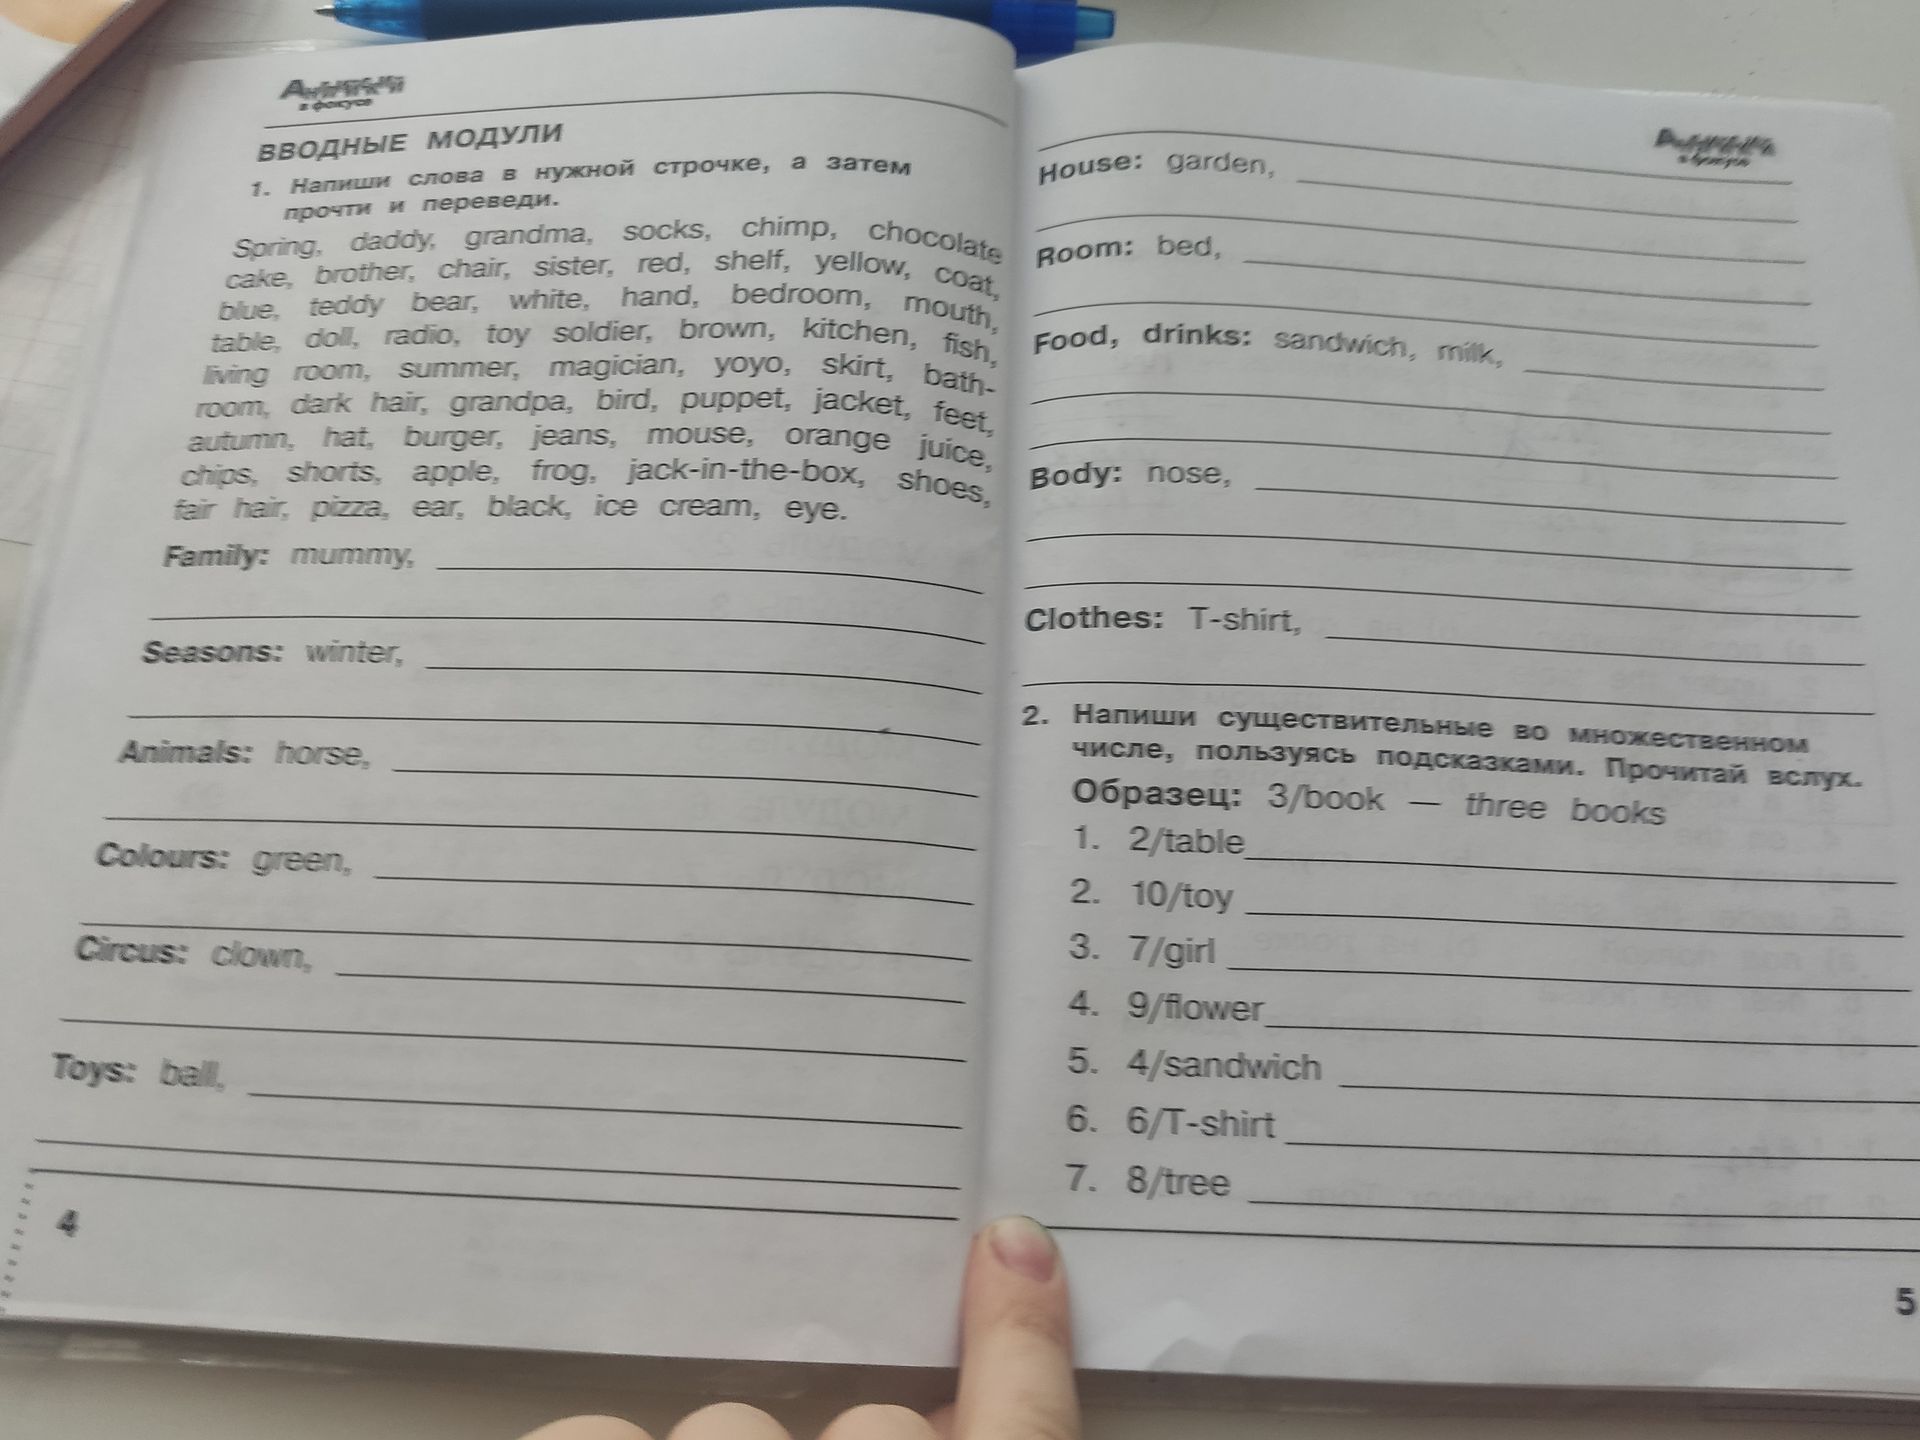 Английский
в фокусе
ВВОДНЫЕ МОДУЛИ
1. Напиши слова в нужной строчке, а затем
прочти и переведи.
Spring, daddy, grandma, socks, chimp, chocolate
cake, brother, chair, sister, red, shelf, yellow, coat,
blue, teddy bear, white, hand, bedroom, mouth,
table, doll, radio, toy soldier, brown, kitchen, fish,
living room, summer, magician, yoyo, skirt, bath-
room, dark hair, grandpa, bird, puppet, jacket, feet,
autumn, hat, burger, jeans, mouse, orange juice,
chips, shorts, apple, frog, jack-in-the-box, shoes,
fair hair, pizza, ear, black, ice cream, eye.
Family: mummy,
Seasons: winter,
Animals: horse,
Colours: green,
Circus: clown,
Toys: ball,
4
House: garden,
Room: bed,
Food, drinks: sandwich, milk,
Body: nose,
Clothes: T-shirt,
2. Напиши существительные во множественном
числе, пользуясь подсказками. Прочитай вслух.
Образец: 3/book — three books
1. 2/table
2. 10/toy
3. 7/girl
4. 9/flower
5. 4/sandwich
6. 6/T-shirt
7. 8/tree
5